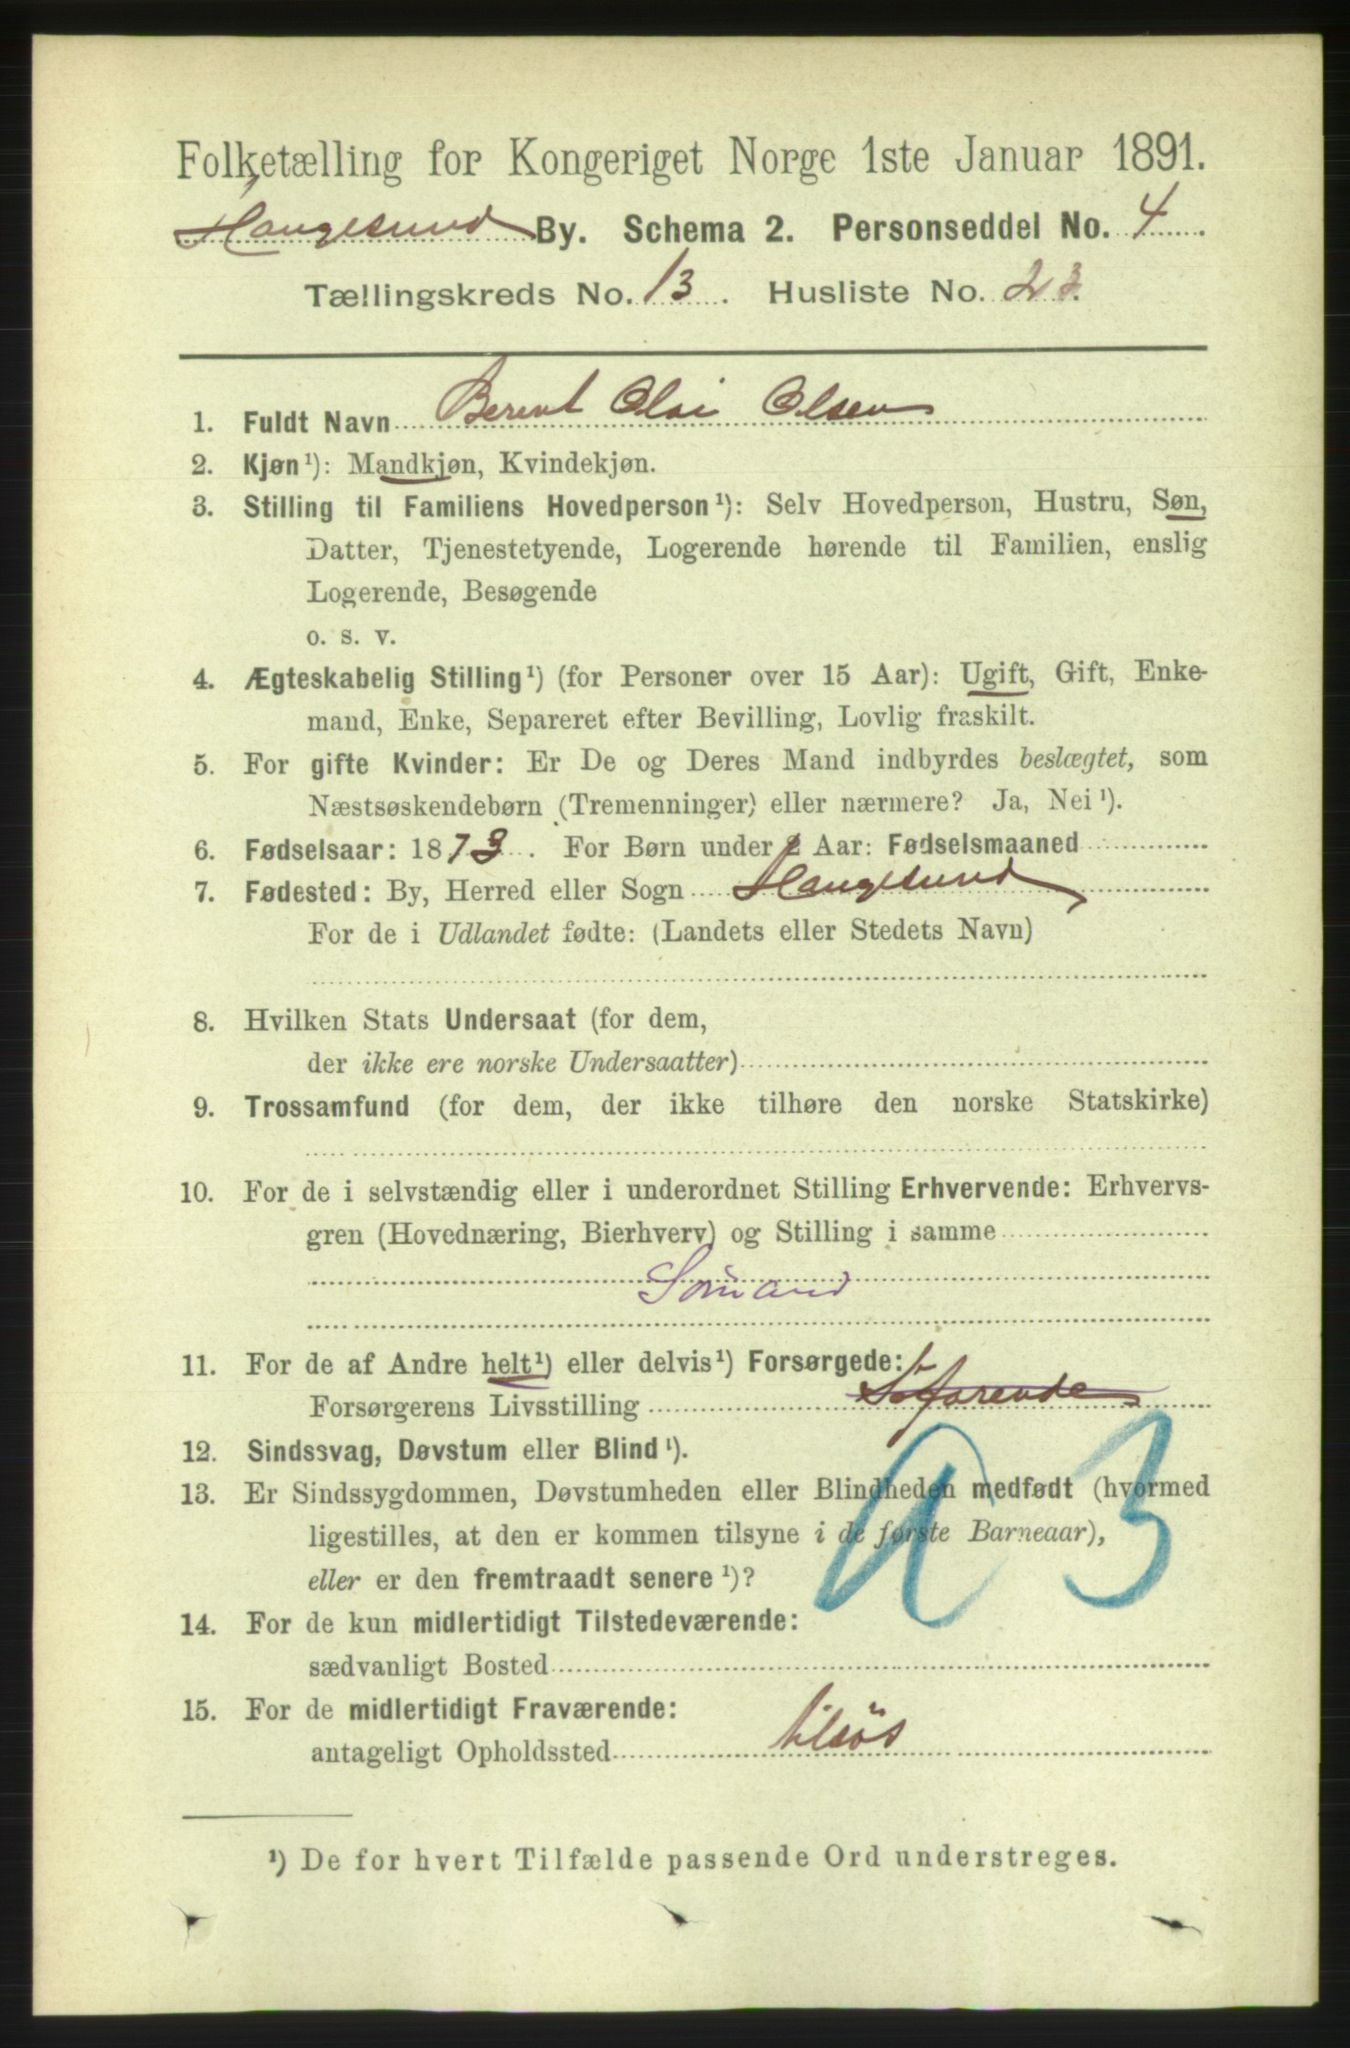 Folketælling for Kongeriget Norge 1ste Januar 1891.
Haugesund By. Schema 2. Personseddel No. 4
Tællingskreds No. 13. Husliste No. 23.
1. Fuldt Navn Berent Olai Olsen
2. Kjøn¹): Mandkjøn, Kvindekjøn.
3. Stilling til Familiens Hovedperson¹): Selv Hovedperson, Hustru, Søn,
Datter, Tjenestetyende, Logerende hørende til Familien, enslig
Logerende, Besøgende
o. s. v.
4. Ægteskabelig Stilling¹) (for Personer over 15 Aar): Ugift, Gift, Enke-
mand, Enke, Separeret efter Bevilling, Lovlig fraskilt.
5. For gifte Kvinder: Er De og Deres Mand indbyrdes beslægtet, som
Næstsøskendebørn (Tremenninger) eller nærmere? Ja, Nei¹).
6. Fødselsaar: 1873. For Børn under 2 Aar: Fødselsmaaned
7. Fødested: By, Herred eller Sogn Haugesund
For de i Udlandet fødte: (Landets eller Stedets Navn)
8. Hvilken Stats Undersaat (for dem,
der ikke ere norske Undersaatter)
9. Trossamfund (for dem, der ikke tilhøre den norske Statskirke)
10. For de i selvstændig eller i underordnet Stilling Erhvervende: Erhvervs-
gren (Hovednæring, Bierhverv) og Stilling i samme
Sømand
11. For de af Andre helt¹) eller delvis¹) Forsørgede:
Forsørgerens Livsstilling
12. Sindssvag, Døvstum eller Blind¹).
13. Er Sindssygdommen, Døvstumheden eller Blindheden medfødt (hvormed
ligestilles, at den er kommen tilsyne i de første Barneaar),
eller er den fremtraadt senere¹)?
a 3
14. For de kun midlertidigt Tilstedeværende:
sædvanligt Bosted
15. For de midlertidigt Fraværende:
antageligt Opholdssted tilsøs
¹) De for hvert Tilfælde passende Ord understreges.